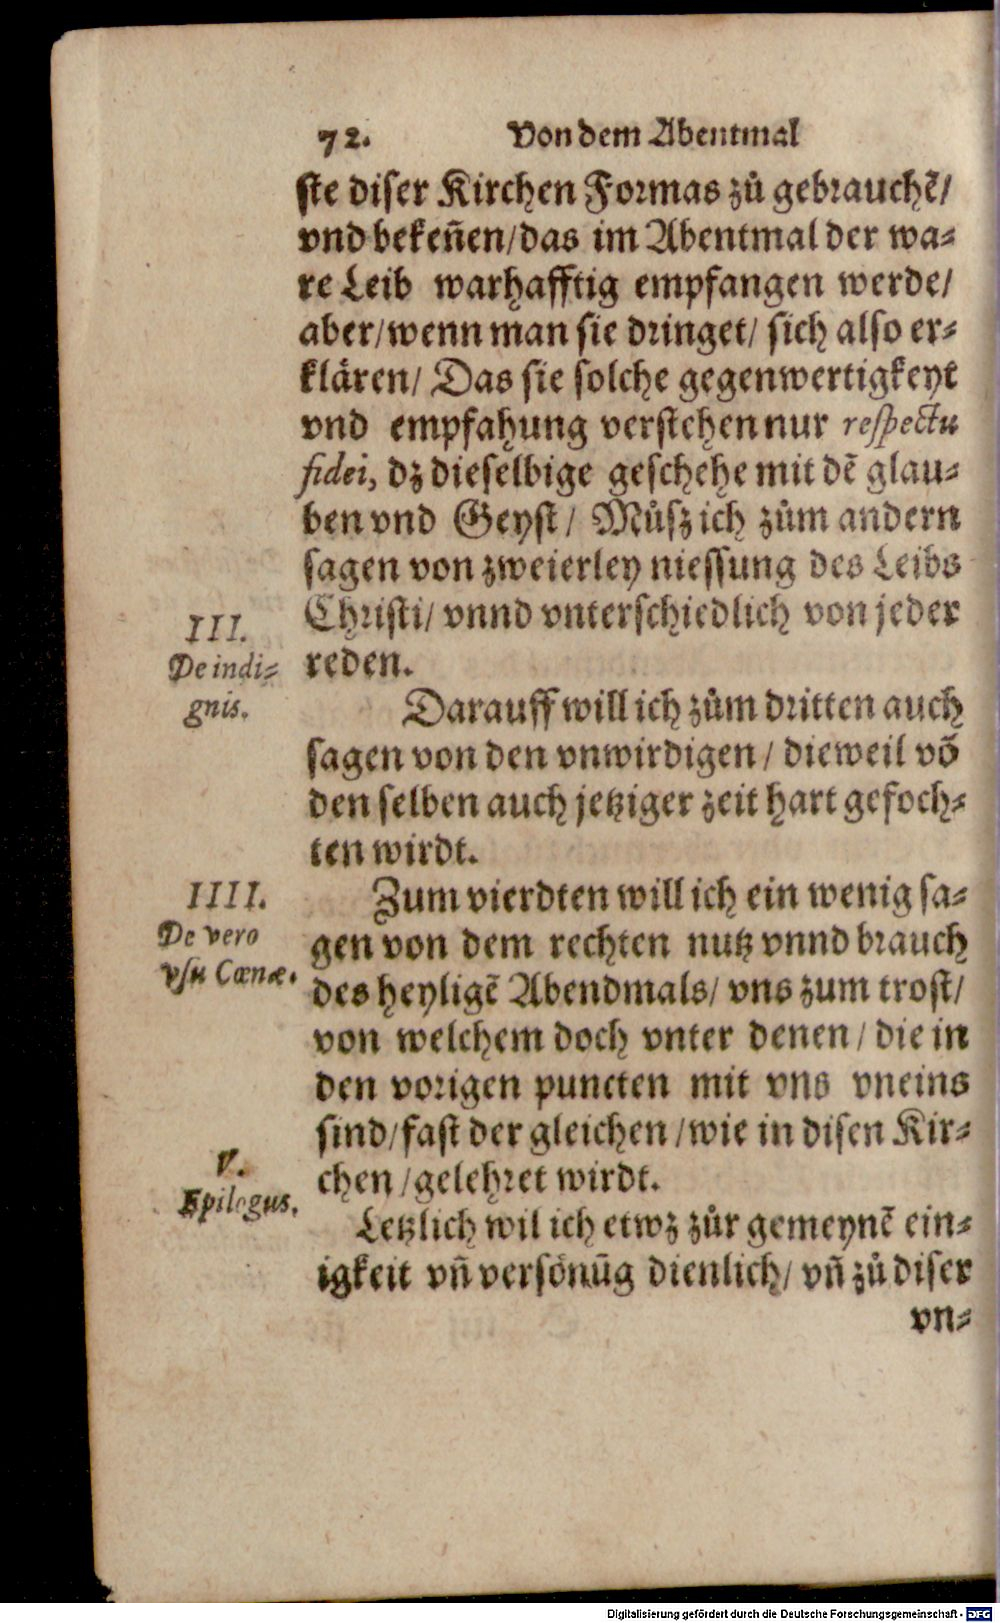 72. Von dem Abentmal
ste diser Kirchen Formas zů gebrauchẽ/
vnd bekeñen/das im Abentmal der wa-
re Leib warhafftig empfangen werde/
aber/wenn man sie dringet/ sich also er-
klären/ Das sie solche gegenwertigkeyt
vnd empfahung verstehen nur respectu
fidei, dz dieselbige geschehe mit dẽ glau-
ben vnd Geyst/ Můsz ich zům andern
sagen von zweierley niessung des Leibs
Christi/ vnnd vnterschiedlich von jeder
reden.
III.
De indi-
gnis.
Darauff will ich zům dritten auch
sagen von den vnwirdigen/ dieweil võ
den selben auch jetziger zeit hart gefoch-
ten wirdt.
IIII.
De vero
vsu Cœnæ.
Zum vierdten will ich ein wenig sa-
gen von dem rechten nutz vnnd brauch
des heyligẽ Abendmals/ vns zum trost/
von welchem doch vnter denen/ die in
den vorigen puncten mit vns vneins
sind/fast der gleichen/wie in disen Kir-
chen/gelehret wirdt.
V.
Epilogus.
Letzlich wil ich etwz zůr gemeynẽ ein-
igkeit vñ versönũg dienlich/ vñ zů diser
vn-
Digitalisierung gefördert durch die Deutsche Forschungsgemeinschaft - DFG